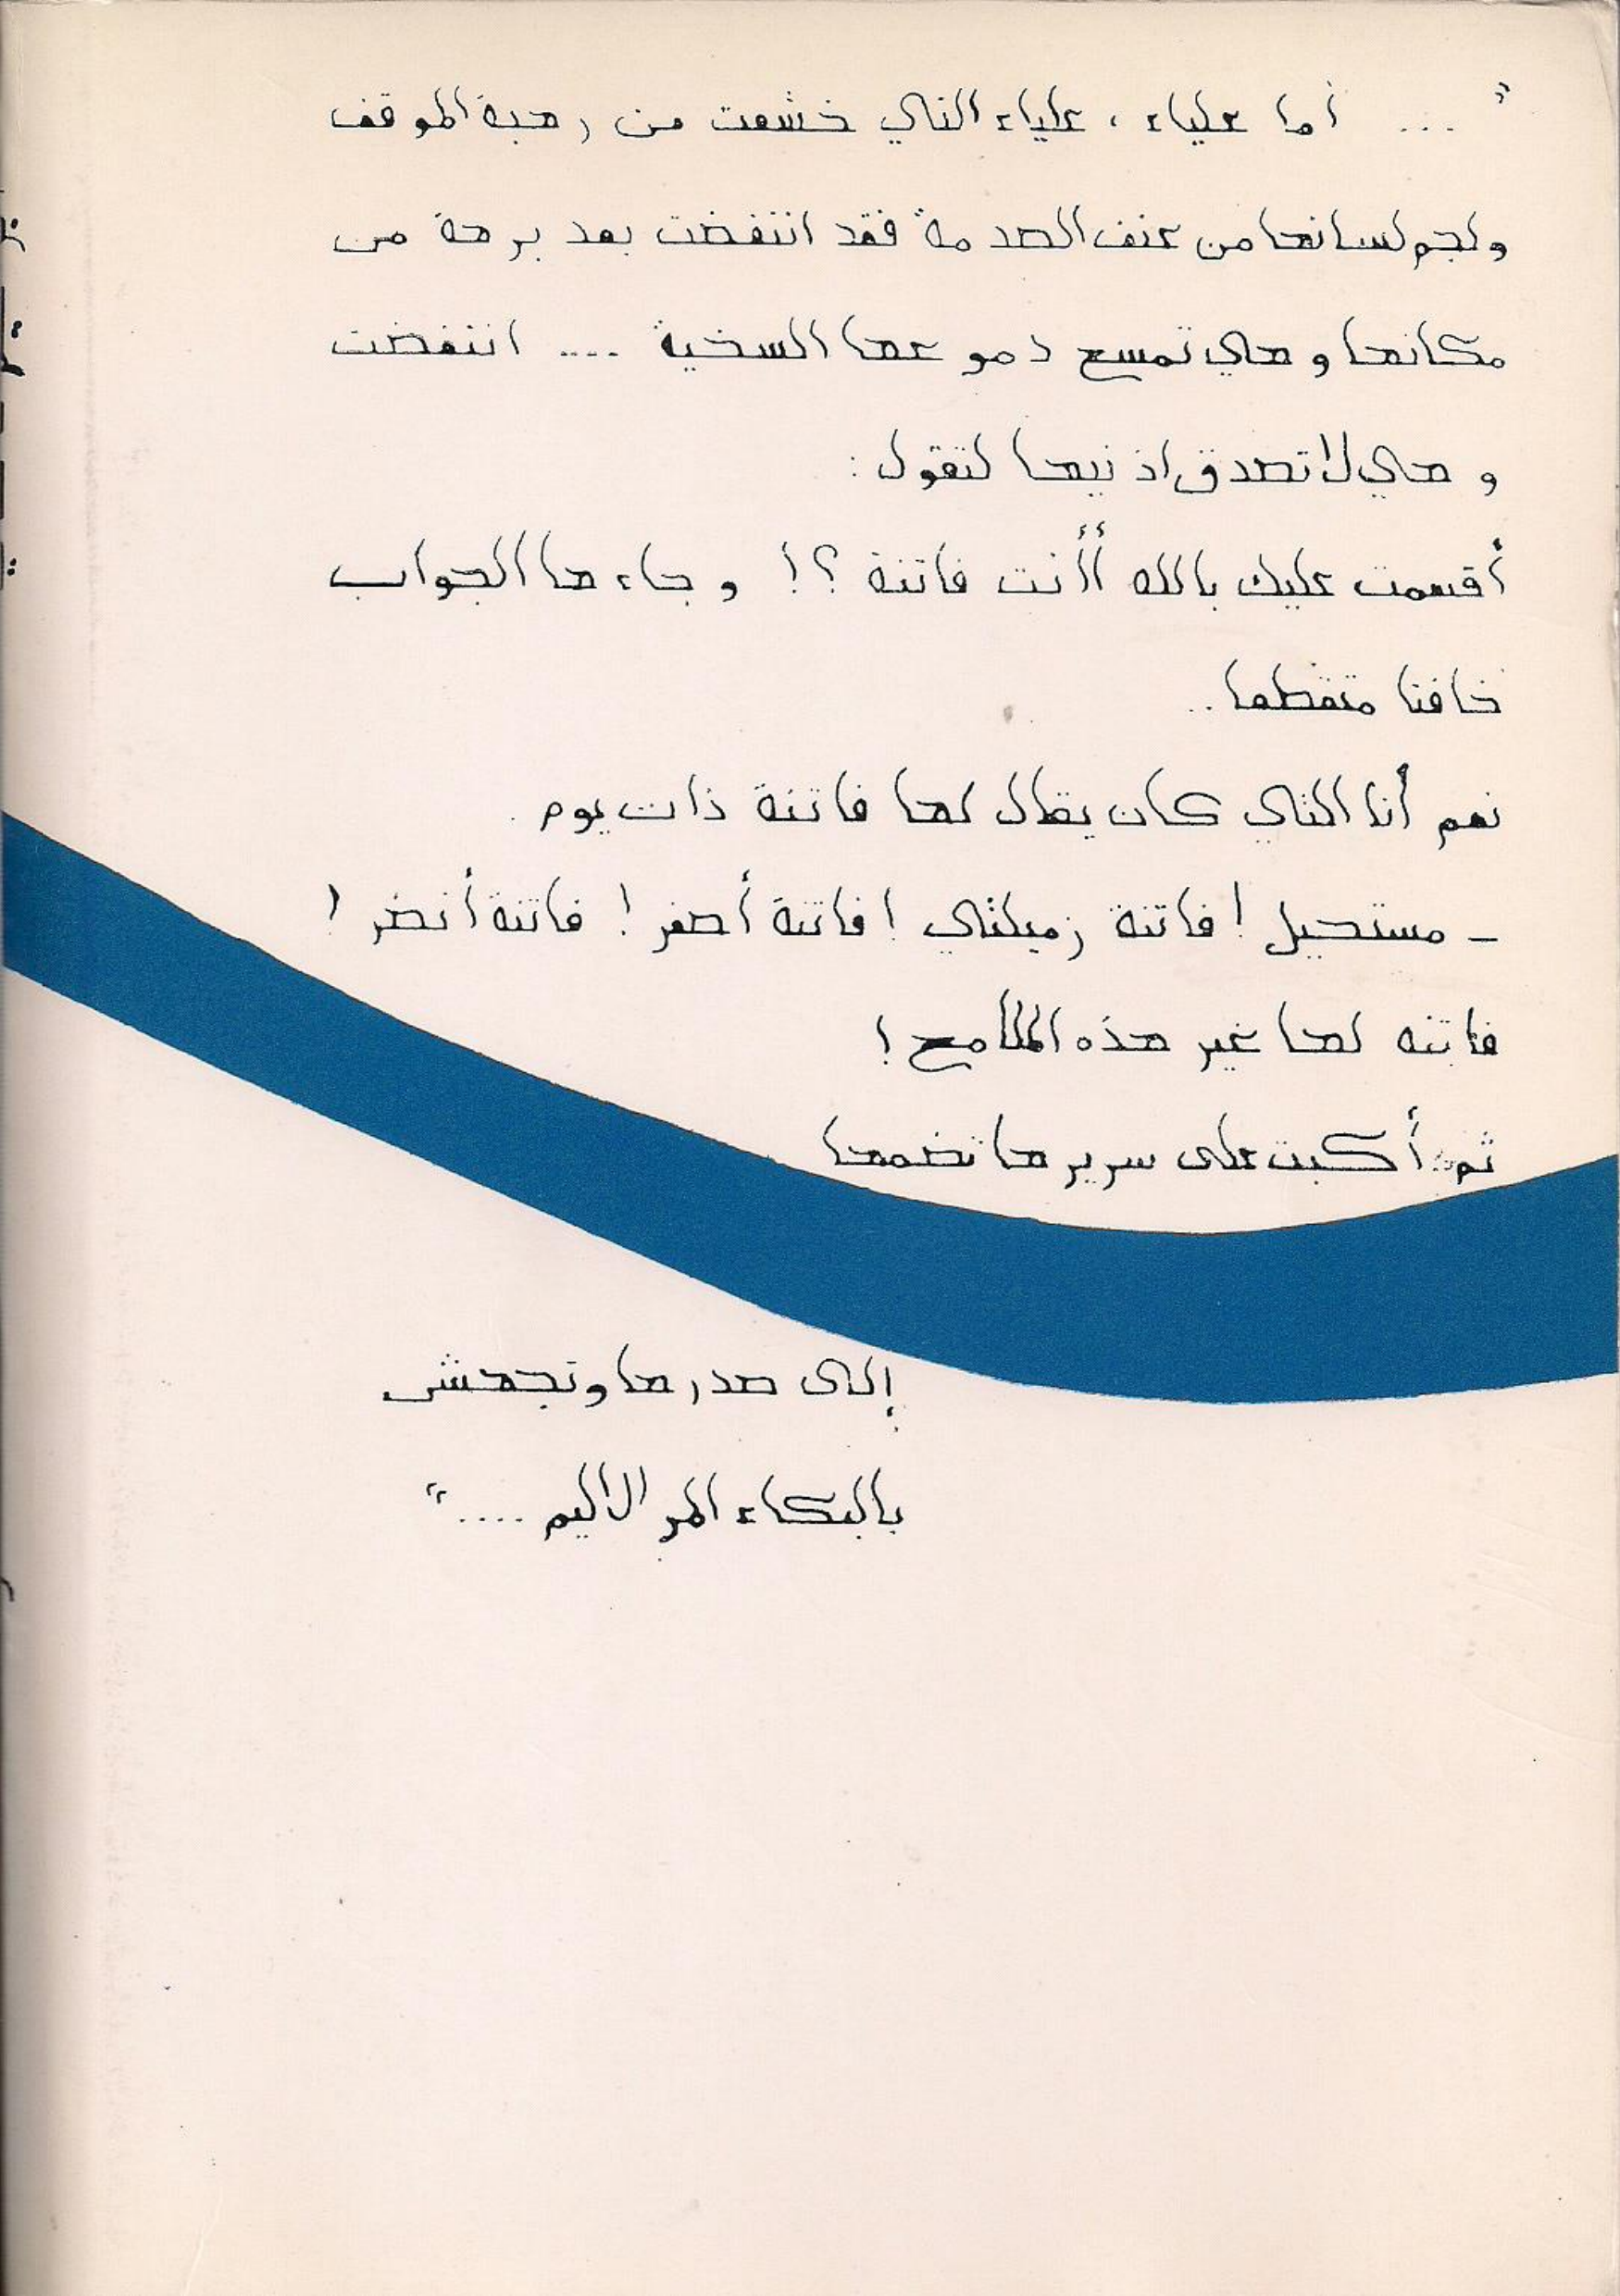 " ... أما علياء ، علياء التي خشعت من رهبة الموقف
ولجم لسانها من عنف الصدمة فقد انتفضت بعد برهة من
مكانها وهي تمسح دموعها السخية .... انتفضت
وهي لا تصدق اذنيها لتقول :
أقسمت عليك بالله أأنت فاتنة ؟! وجاءها الجواب
خافتا متقطعا ..
نعم أنا التي كان يقال لها فاتنة ذات يوم .
- مستحيل ! فاتنة زميلتي ! فاتنة أصغر ! فاتنة أنضر !
فاتنه لها غير هذه الملامح !
ثم أكبت على سريرها تضمها
إلى صدرها وتجهش
بالبكاء المر الاليم .... "